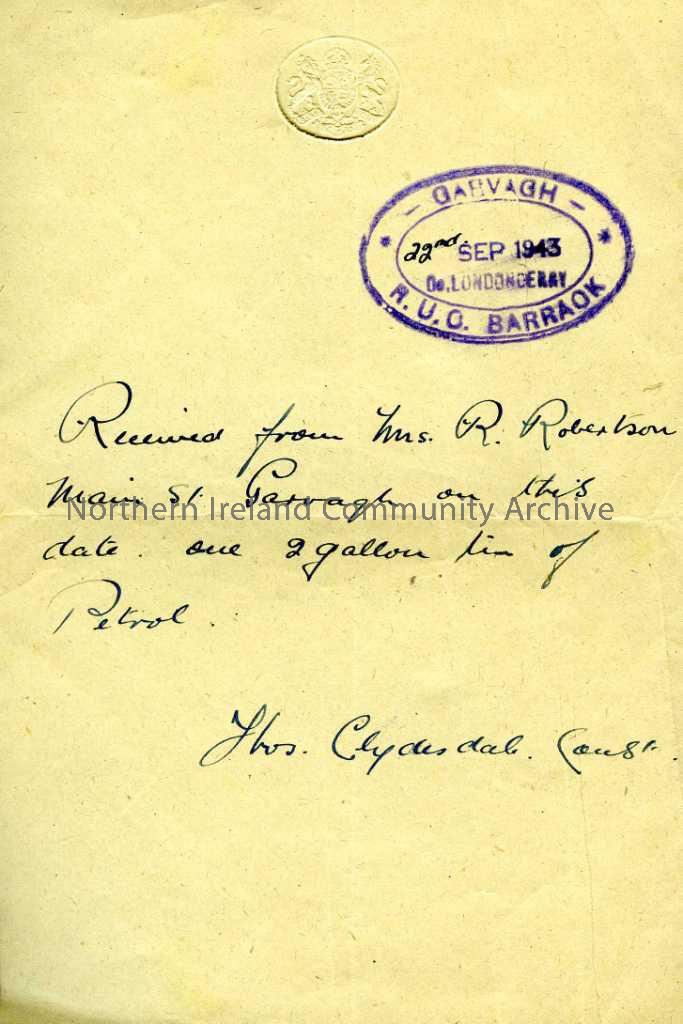 - GARVAGH -
22nd SEP 1943
Co. LONDONDERRY
R.U.C. BARRACK
Received from Mrs. R. Robertson
Main St. Garvagh on this
Northern Ireland Community Archive
date. one 2 gallon tin of
Petrol.
Thos. Clydesdale. Const.